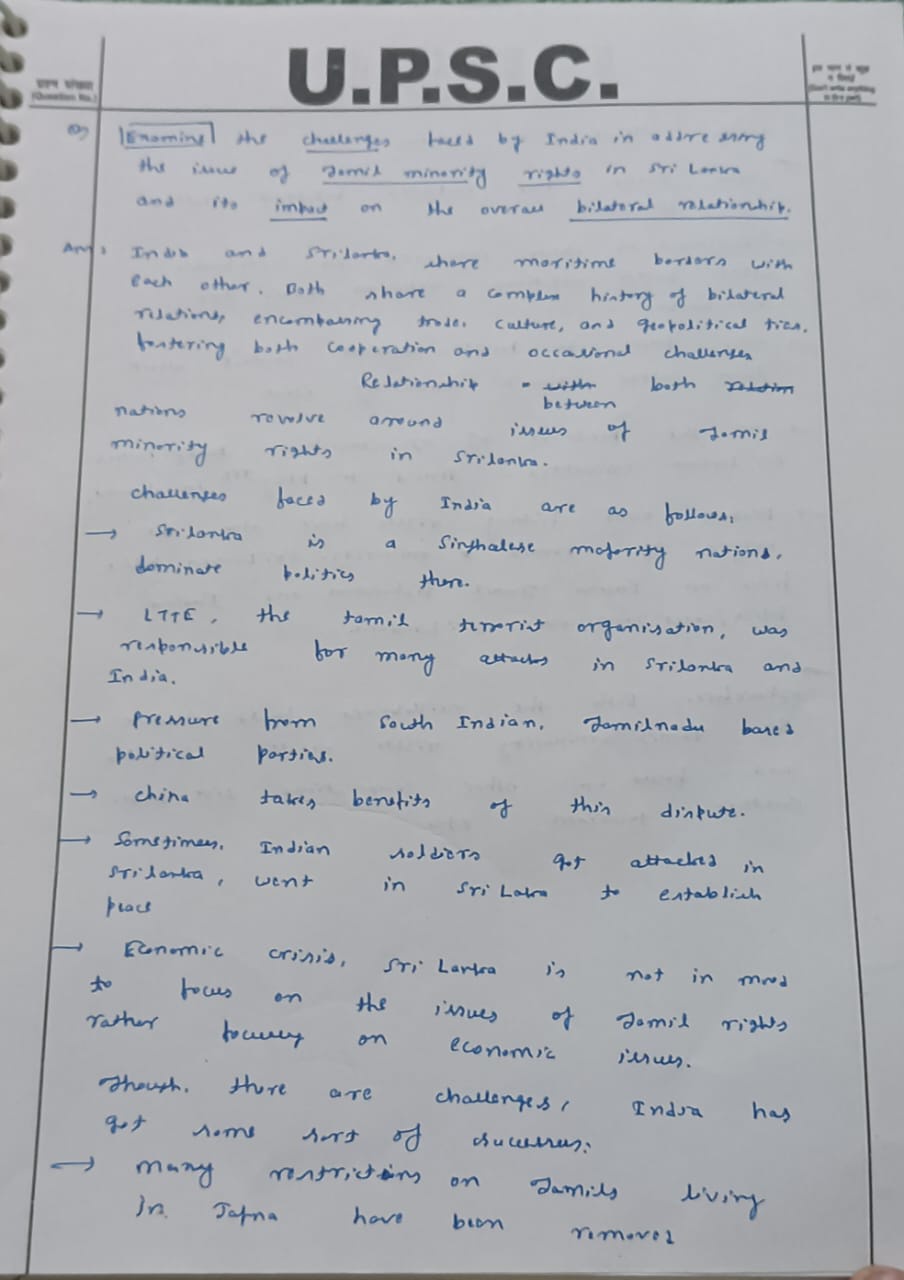 U.P.S.C.
प्रश्न संख्या
(Question No.)
(Don't write anything
in this part)
Q) Examine the challenges faced by India in addressing
the issue of Tamil minority rights in Sri Lanka
and its impact on the overall bilateral relationship.
Ans: India and Srilanka, share maritime borders with
each other. Both share a complex history of bilateral
relations, encompassing trade, culture, and geopolitical ties,
fostering both cooperation and occasional challenges
Relationship with both relation
between
nations revolve around issues of Tamil
minority rights in Srilanka.
challenges faced by India are as follows:
→ Srilanka is a Sinhalese majority nations,
dominate politics there.
→ LTTE, the tamil terrorist organisation, was
responsible for many attacks in Srilanka and
India.
→ Pressure from South Indian, Tamilnadu based
political parties.
→ China takes benefits of this dispute.
→ Sometimes, Indian soldiers got attacked in
Srilanka, went in Sri Laka to establish
peace
→ Economic crisis, Sri Lanka is not in mood
to focus on the issues of Tamil rights
rather focusing on economic issues.
Though, there are challenges, India has
got some sort of successes:
→ Many restrictions on Tamils living
in Jafna have been removed